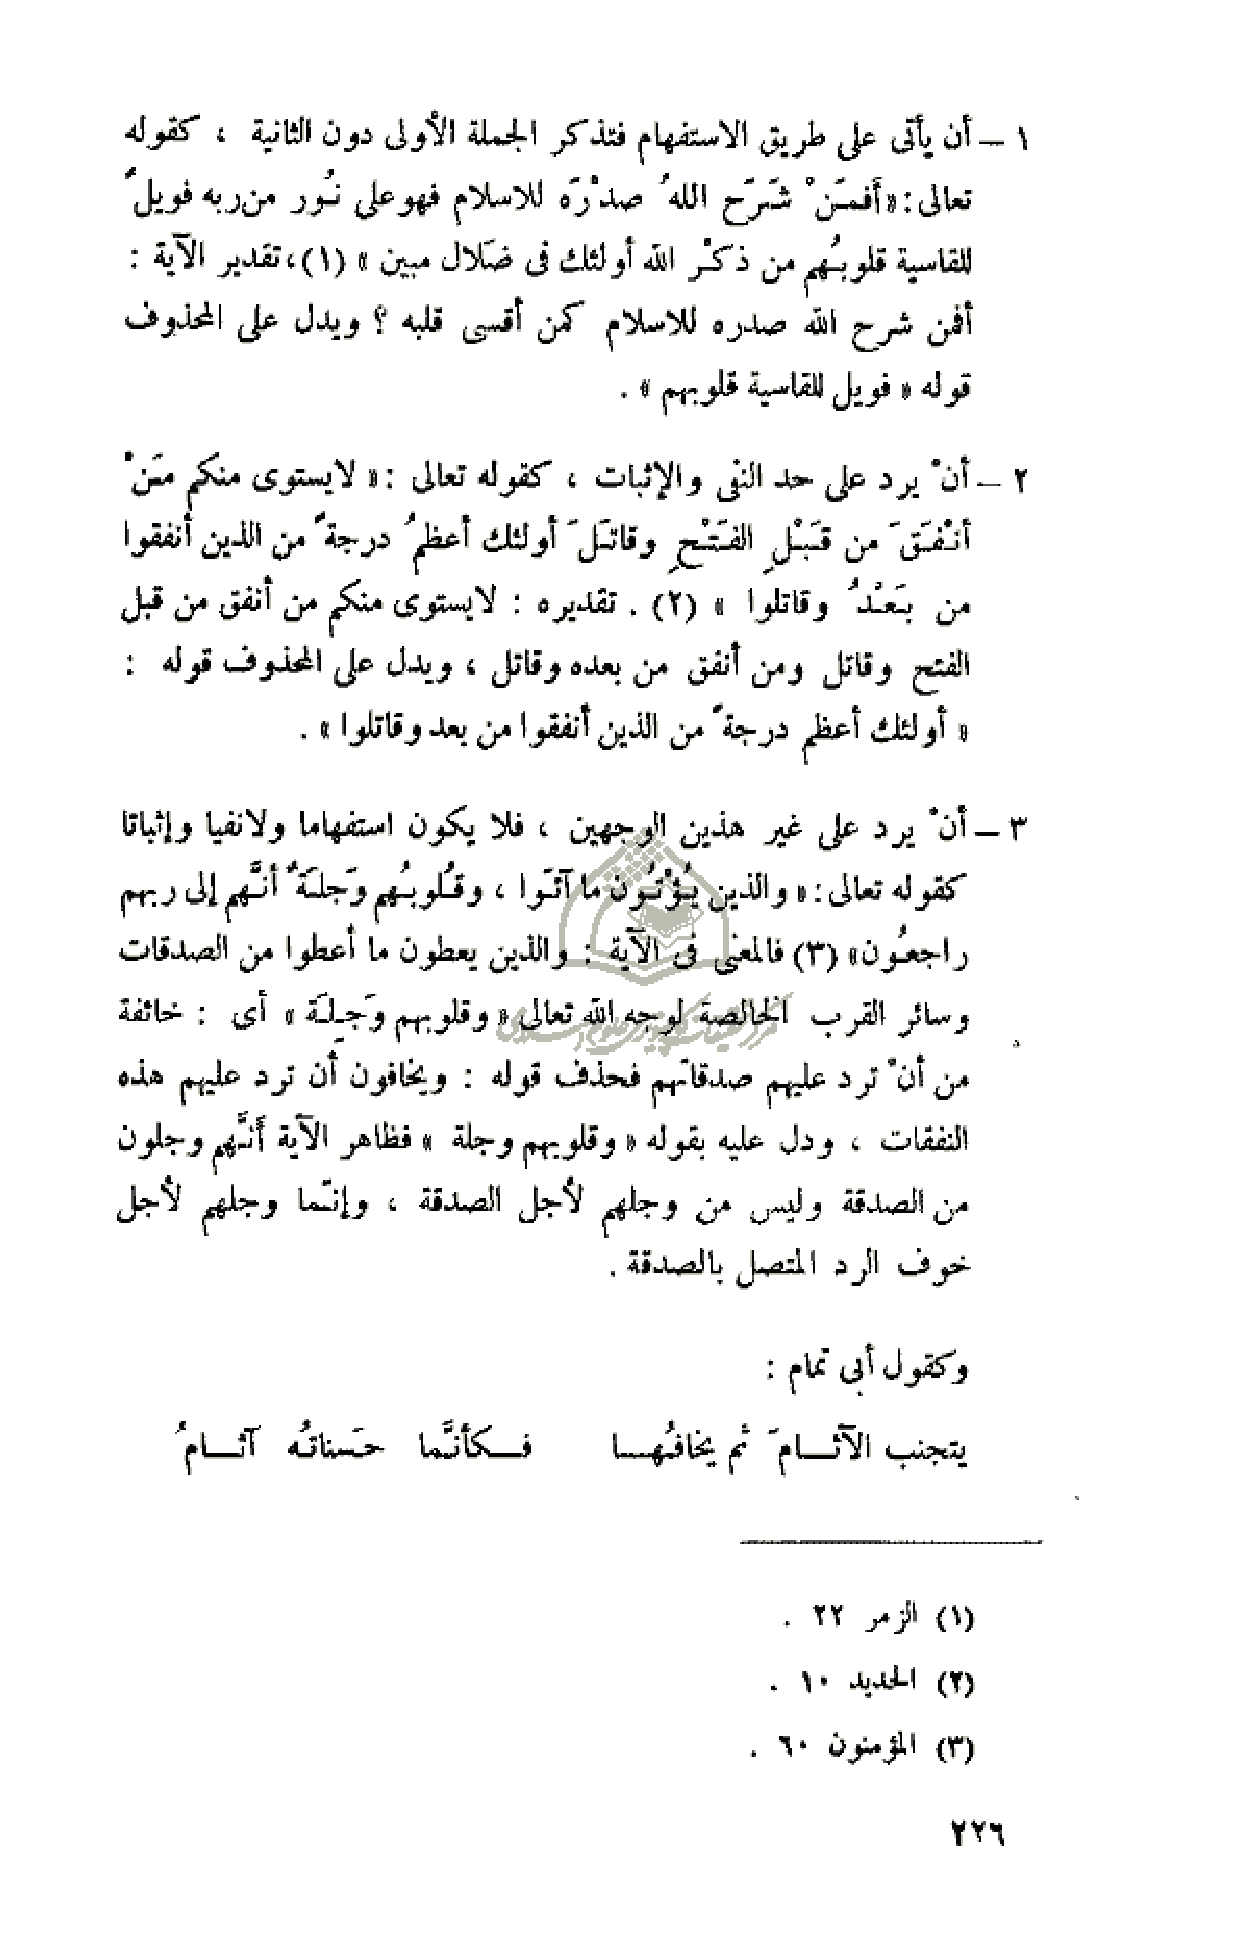 ١ – أن يأتى على طريق الاستفهام فتذكر الجملة الأولى دون الثانية ، كقوله
تعالى : « أَفمَنْ شَرَح اللهُ صدْرَه للاسلام فهو على نُور من ربه فويلٌ
للقاسية قلوبُهم من ذكْر الله أولئك فى ضَلال مبين » (١)، تقدير الآية :
أفمن شرح الله صدره للاسلام كمن أقسى قلبه ؟ ويدل على المحذوف
قوله « فويل للقاسية قلوبهم » .
٢ – أنْ يرد على حد النفى والإثبات ، كقوله تعالى : « لايستوى منكم مَنْ
أنْفَقَ من قَبْلِ الفَتْحِ وقاتَلَ أولئك أعظمُ درجةً من الذين أنفقوا
من بَعْدُ وقاتلوا » (٢) . تقديره : لايستوى منكم من أنفق من قبل
الفتح وقاتل ومن أنفق من بعده وقاتل ، ويدل على المحذوف قوله :
« أولئك أعظم درجةً من الذين أنفقوا من بعد وقاتلوا » .
٣ – أنْ يرد على غير هذين الوجهين ، فلا يكون استفهاما ولانفيا وإثباتا
كقوله تعالى : « والذين يُؤْتُون ما آتَوا ، وقُلوبُهم وَجلَةٌ أنَّهم إلى ربهم
راجعُون» (٣) فالمعنى فى الآية : والذين يعطون ما أعطوا من الصدقات
وسائر القرب الخالصة لوجه الله تعالى « وقلوبهم وَجِلَة » أى : خائفة
من أنْ ترد عليهم صدقاتهم فحذف قوله : ويخافون أن ترد عليهم هذه
النفقات ، ودل عليه بقوله « وقلوبهم وجلة » فظاهر الآية أَنَّهم وجلون
من الصدقة وليس من وجلهم لأجل الصدقة ، وإنَّما وجلهم لأجل
خوف الرد المتصل بالصدقة .
وكقول أبى تمام :
يتجنب الآثــامَ ثم يخافُهــا فــكأنَّما حَسناتُه آثــامُ
(١) الزمر ٢٢ .
(٢) الحديد ١٠ .
(٣) المؤمنون ٦٠ .
٢٢٦